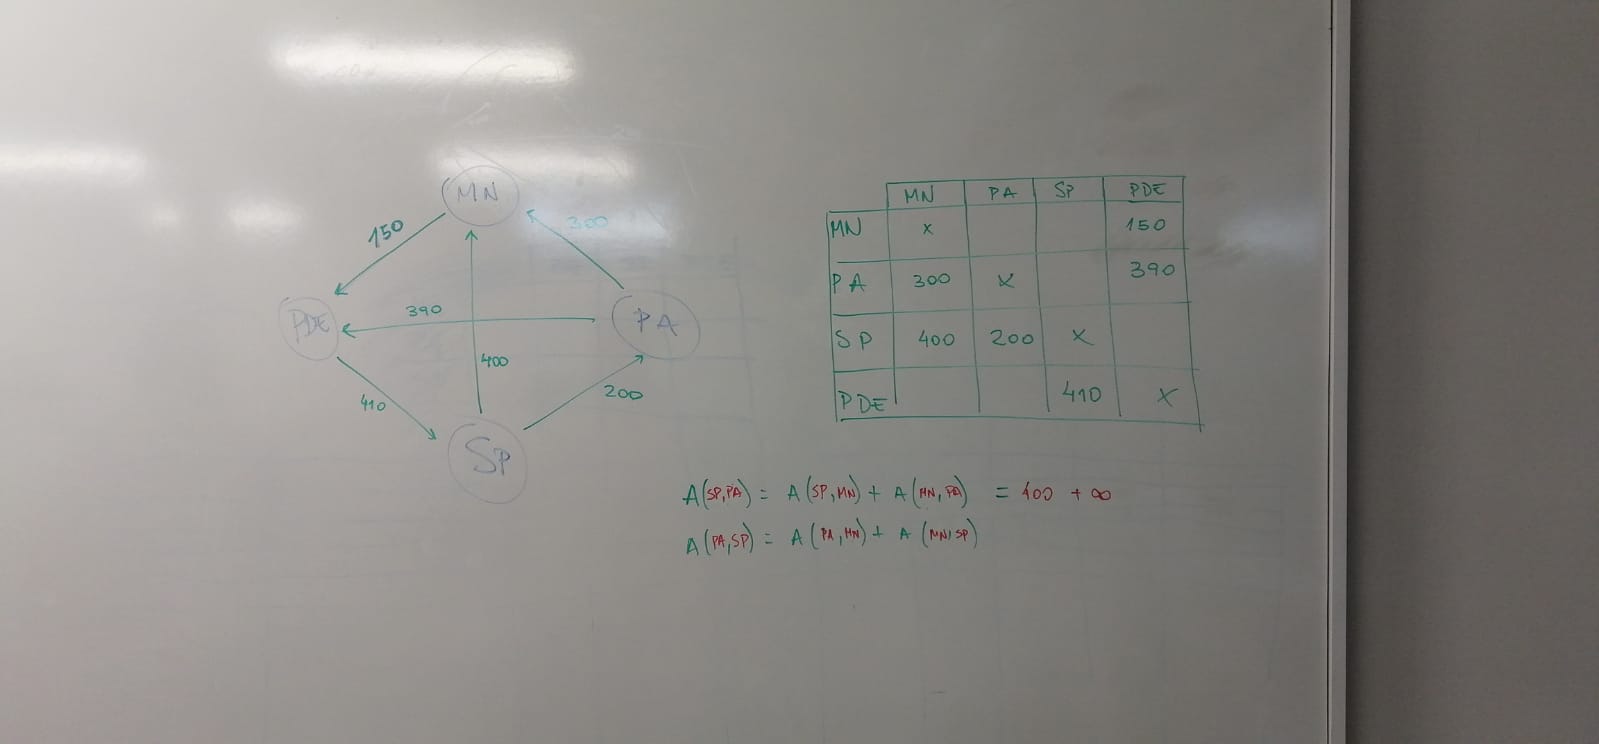 MN
150
300
PDE
390
PA
400
410
200
SP
MN PA SP PDE
MN x 150
PA 300 x 390
SP 400 200 x
PDE 410 x
A(SP,PA) = A(SP,MN) + A(MN,PA) = 400 + ∞
A(PA,SP) = A(PA,MN) + A(MN,SP)